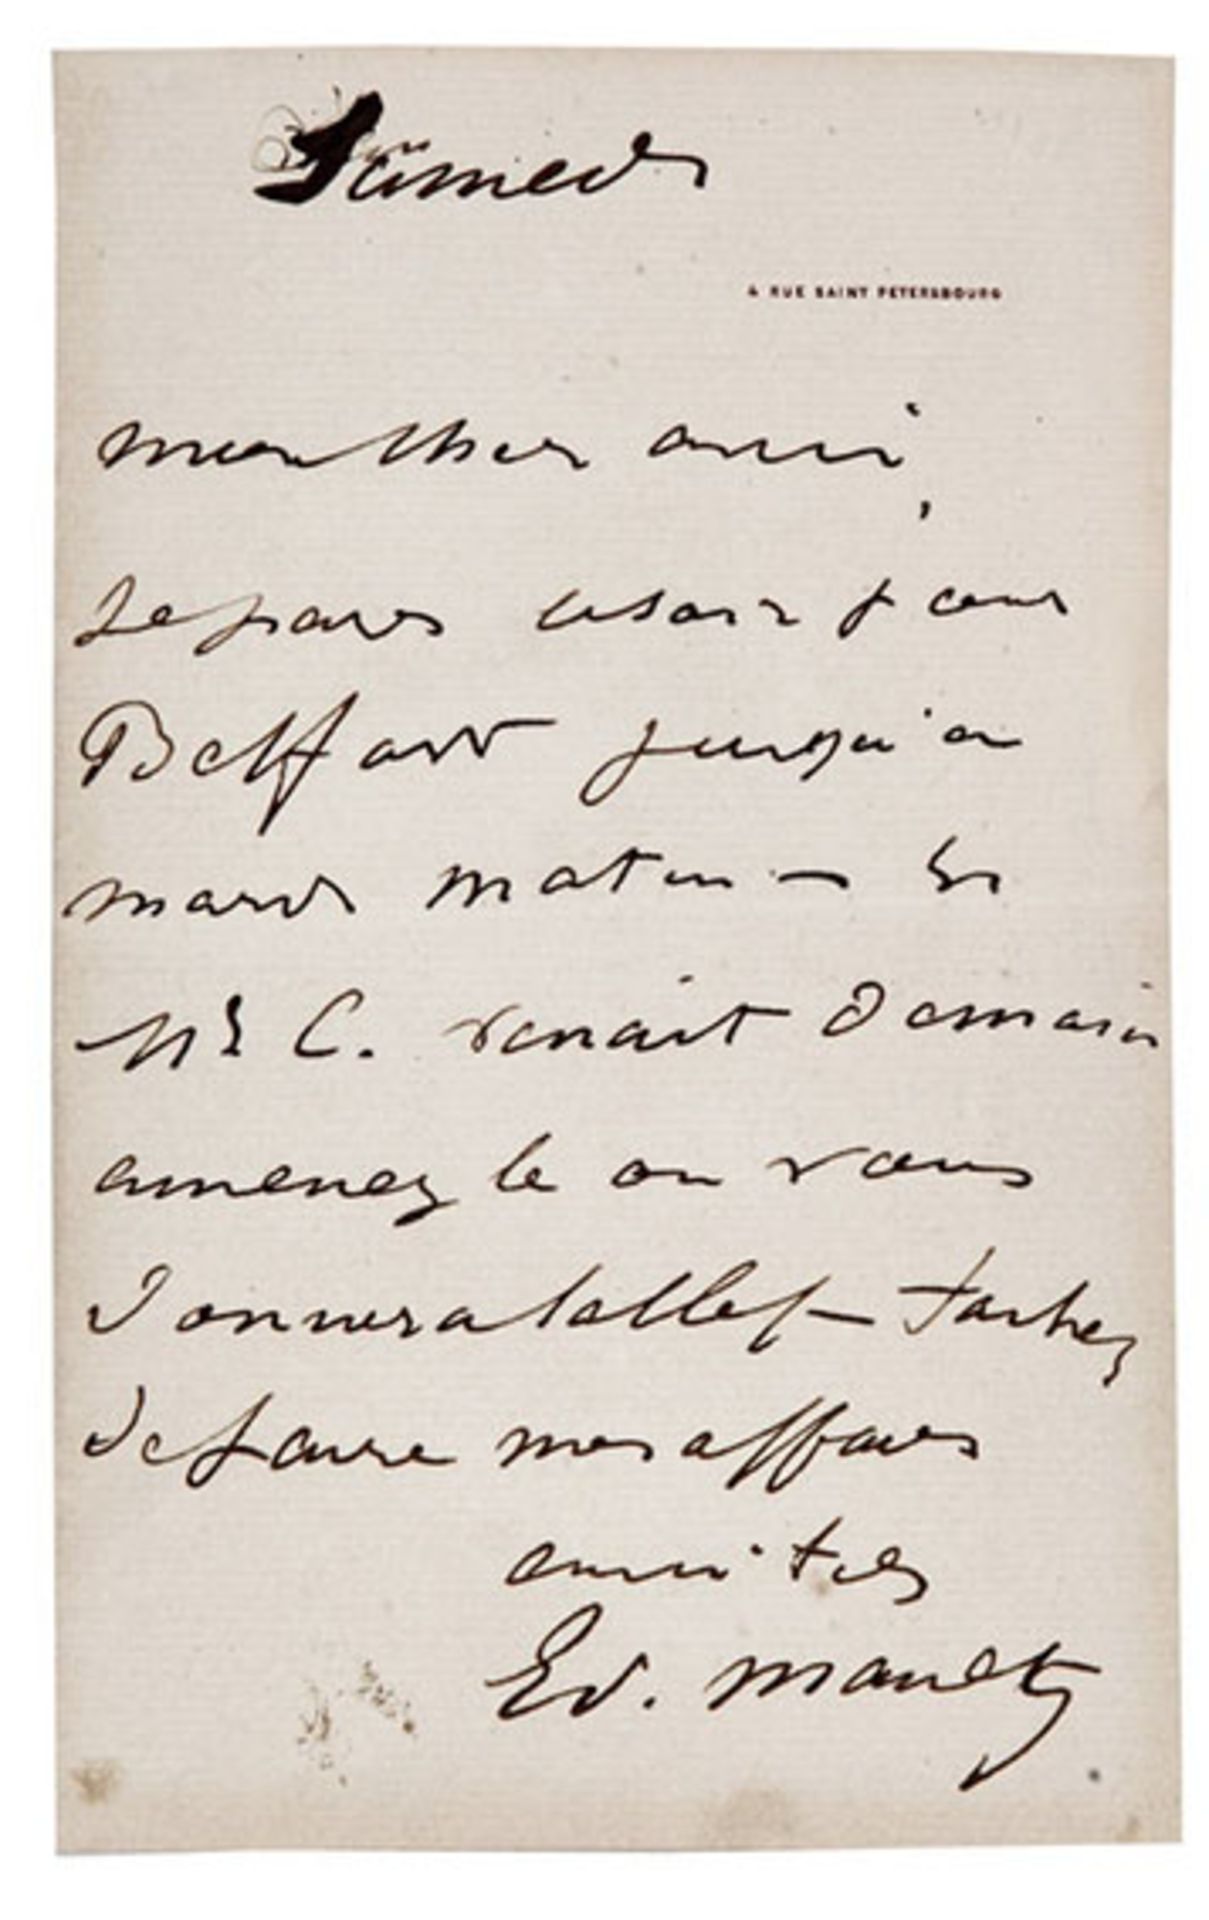 Samedi
4 RUE SAINT PETERSBOURG
mon cher ami,
Je pars ce soir pour
Belfort jusqu'a
mardi matin — Si
Mr C. venait demain
amenez le on vous
donnera la clef — tachez
de faire mes affaires
amitiés
Ed. Manet